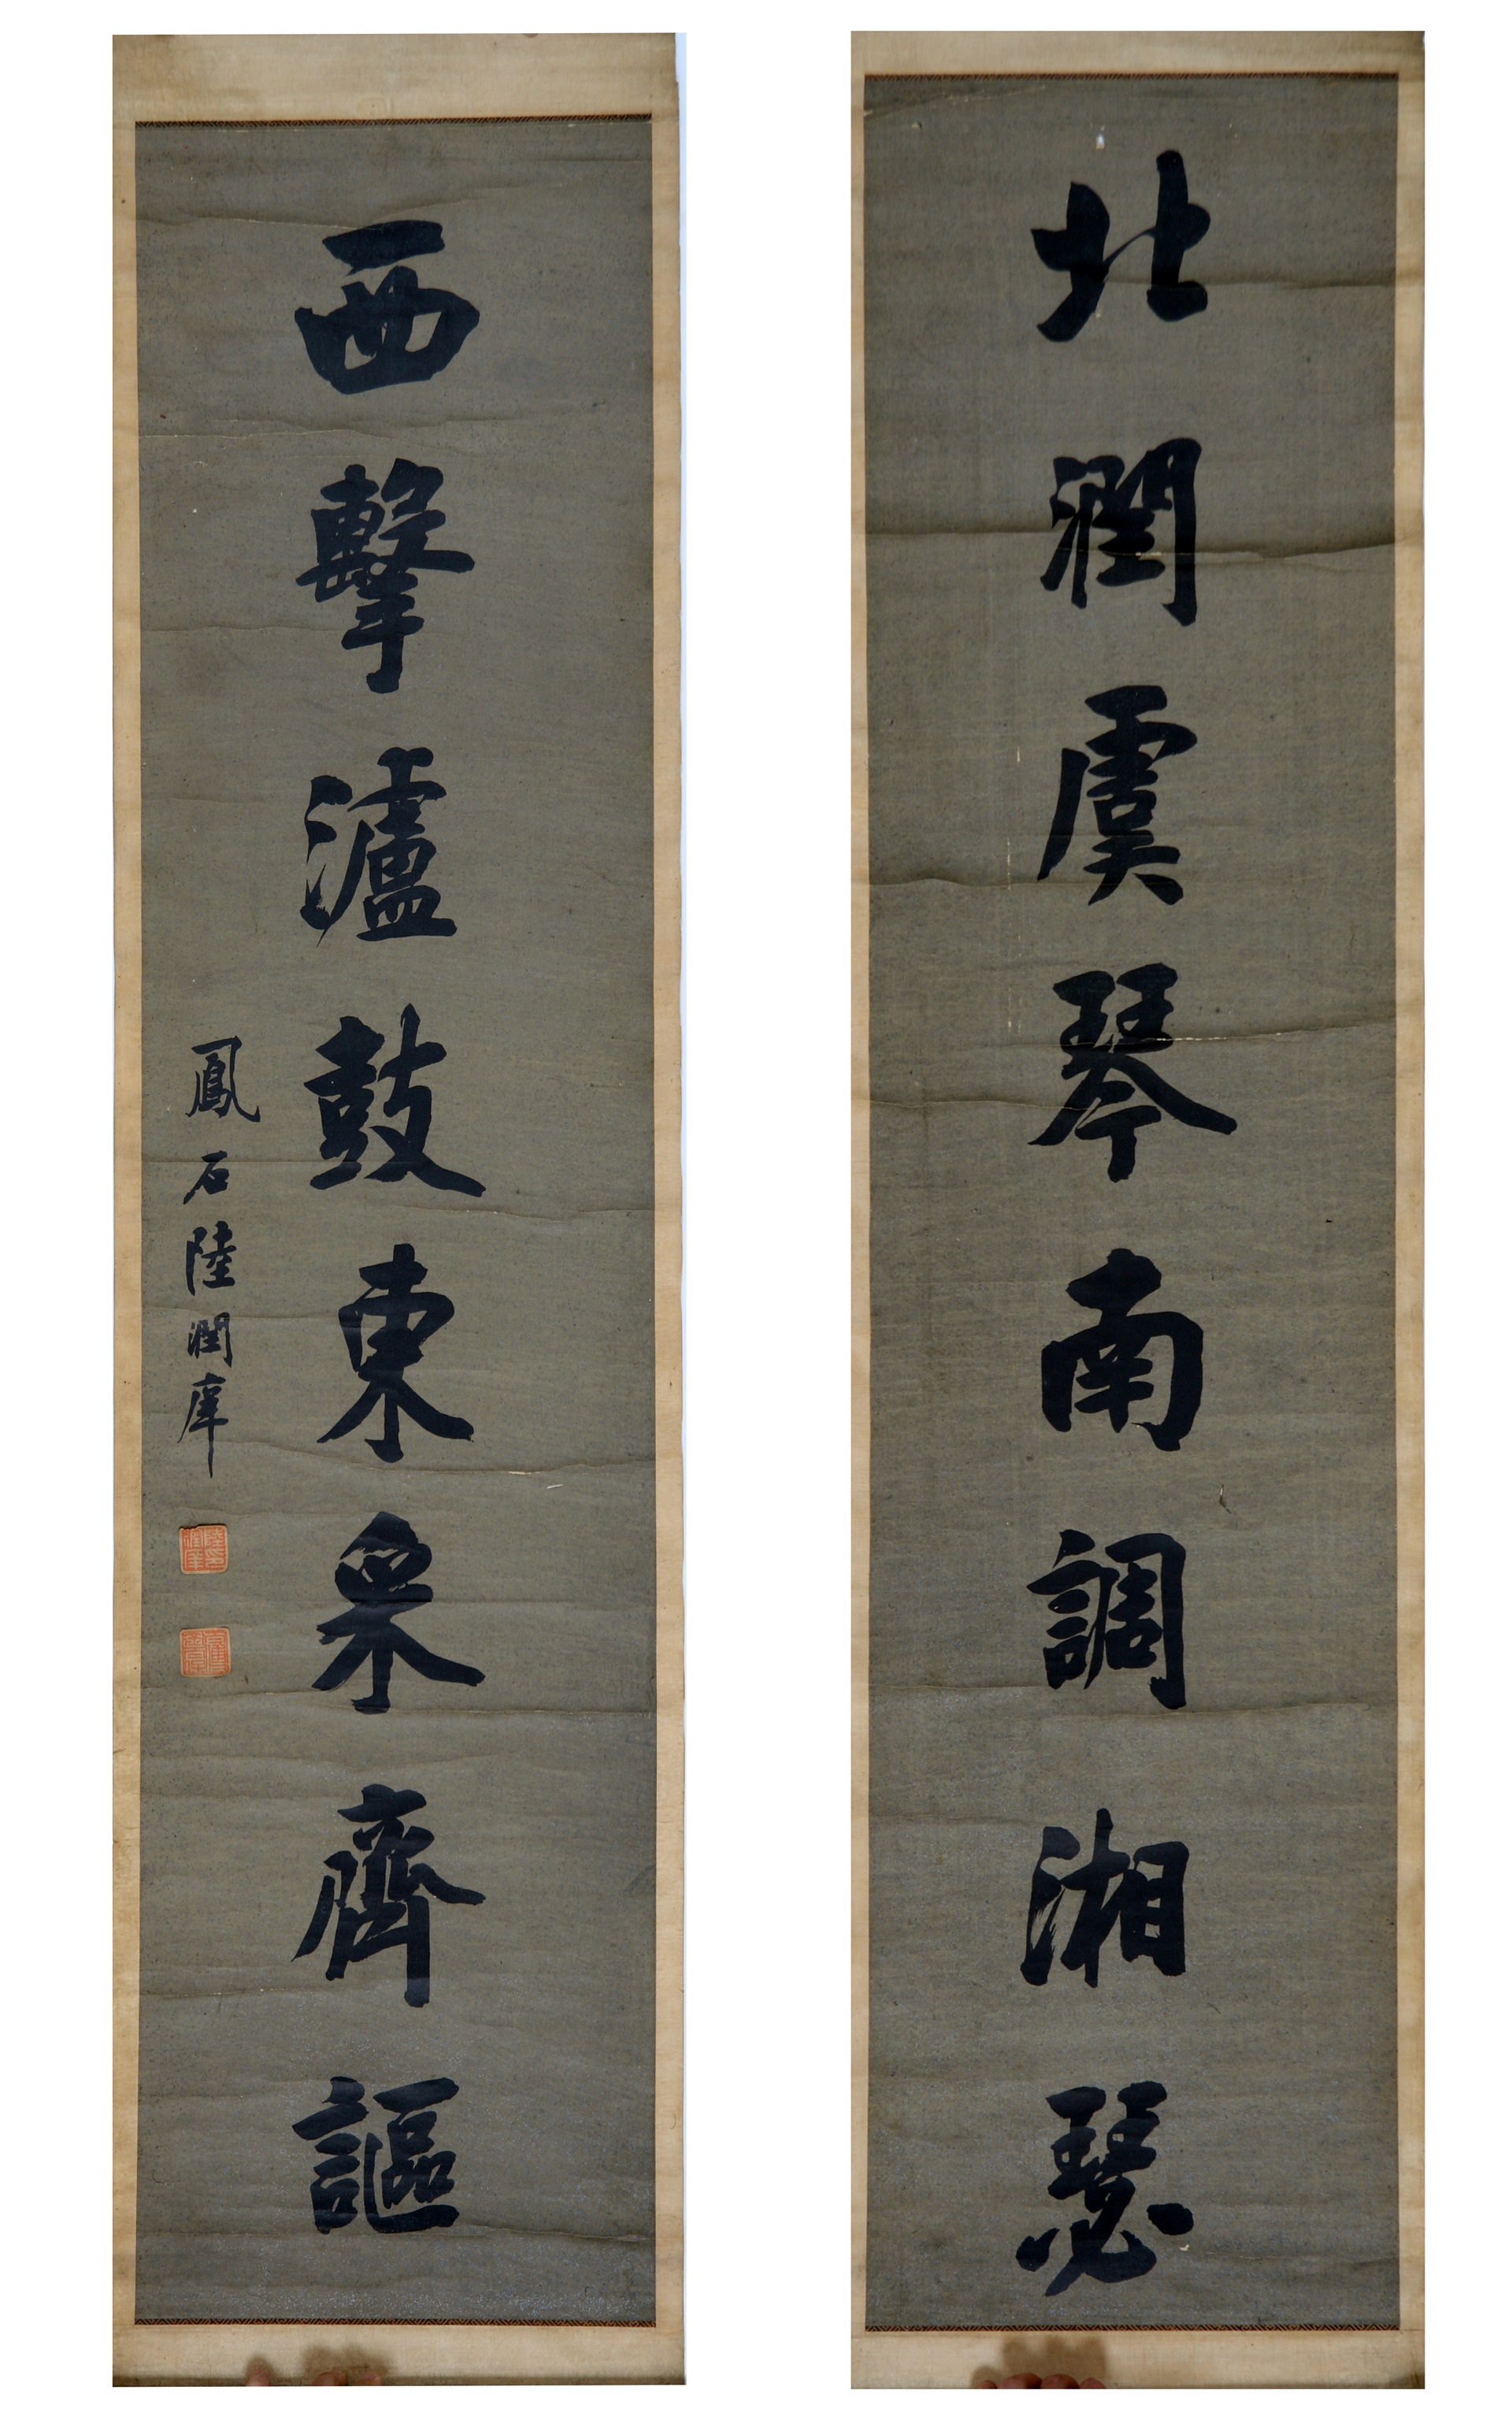 北潤虞琴南調湘瑟
西擊瀘鼓東采齊謳
鳳石陸潤庠